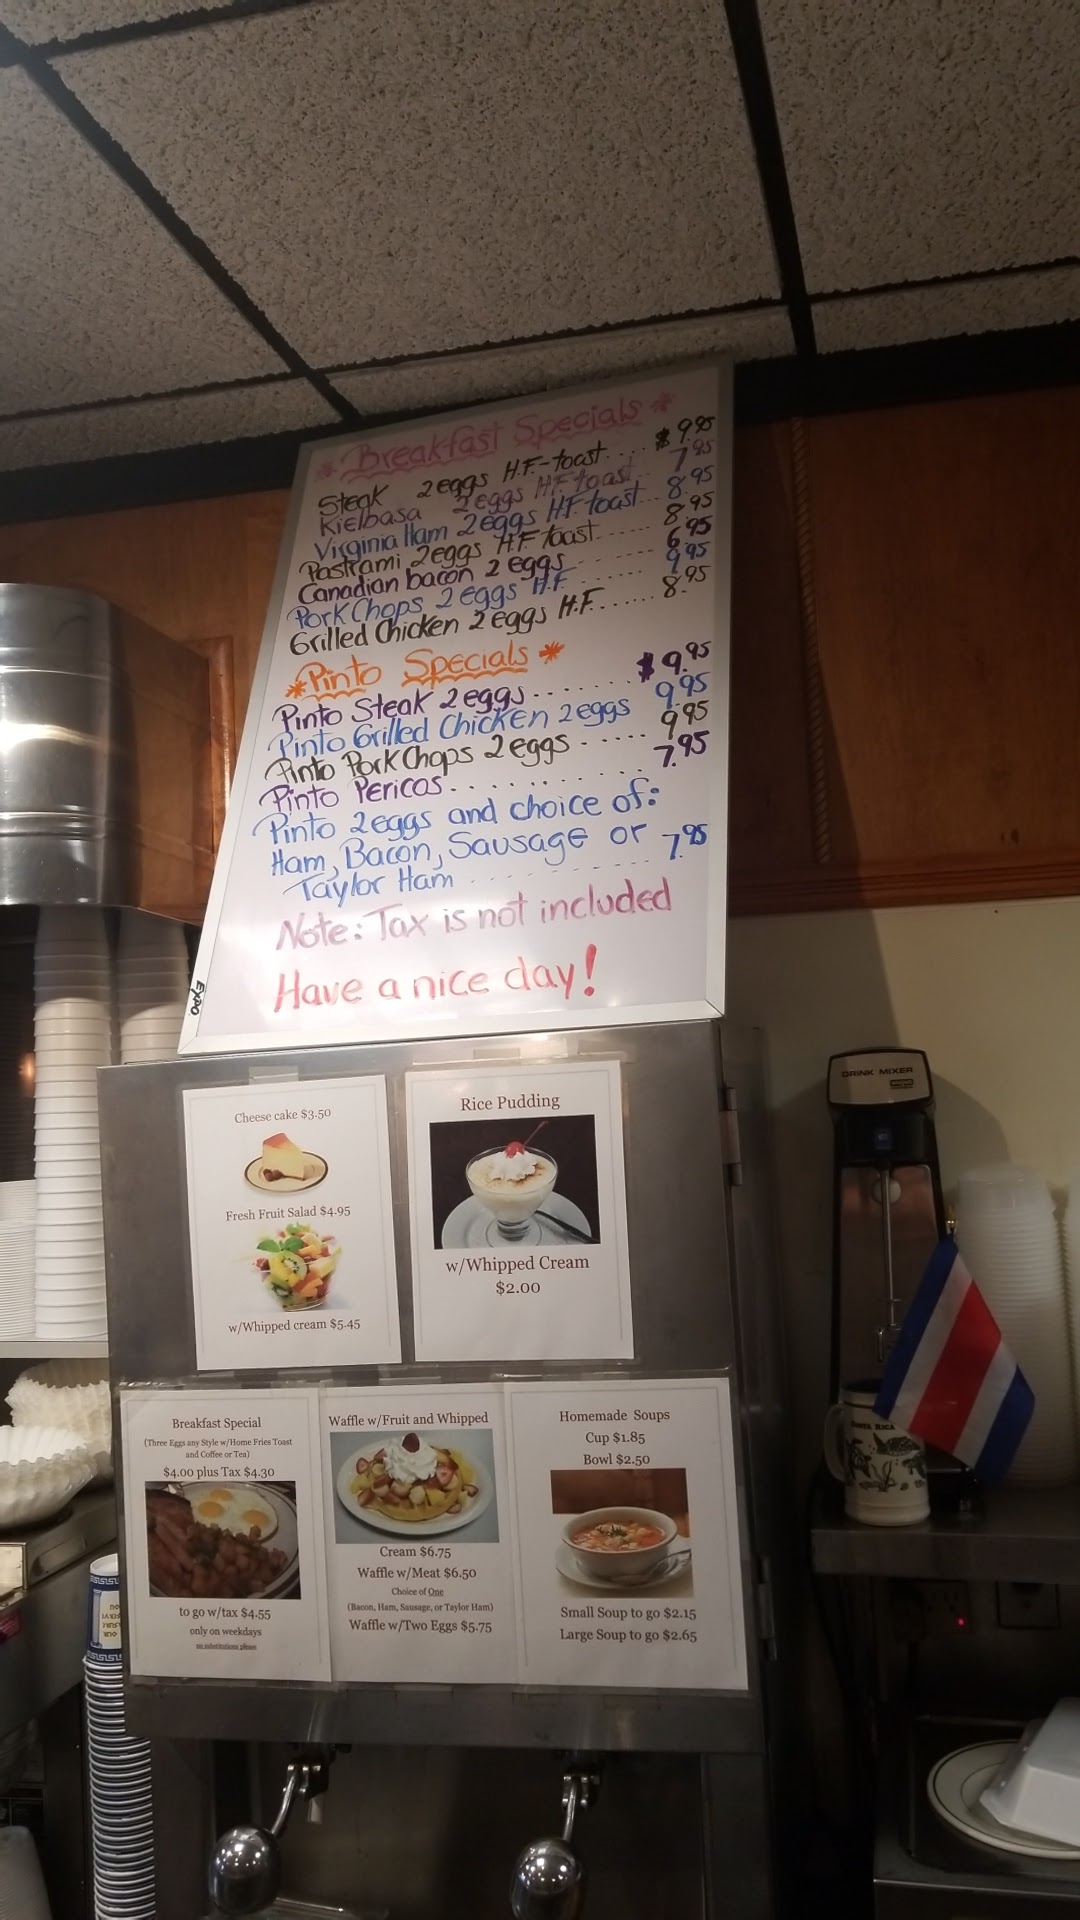 * Breakfast Specials *
Steak 2 eggs H.F.-toast.... $9.95
Kielbasa 2 eggs H.F. toast 7.95
Virginia Ham 2 eggs H.F. toast... 8.95
Pastrami 2 eggs H.F. toast...... 8.95
Canadian bacon 2 eggs ...... 6.95
Pork Chops 2 eggs H.F. ...... 9.95
Grilled Chicken 2 eggs H.F....... 8.95
* Pinto Specials *
Pinto Steak 2 eggs....... $9.95
Pinto Grilled Chicken 2 eggs 9.95
Pinto Pork Chops 2 eggs ..... 9.95
Pinto Pericos........... 7.95
Pinto 2 eggs and choice of:
Ham, Bacon, Sausage or
Taylor Ham .......... 7.95
Note: Tax is not included
Have a nice day!
EXPO
Cheese cake $3.50
Fresh Fruit Salad $4.95
w/Whipped cream $5.45
Rice Pudding
w/Whipped Cream
$2.00
DRINK MIXER
Breakfast Special
(Three Eggs any Style w/Home Fries Toast
and Coffee or Tea)
$4.00 plus Tax $4.30
to go w/tax $4.55
only on weekdays
no substitutions please
Waffle w/Fruit and Whipped
Cream $6.75
Waffle w/Meat $6.50
Choice of One
(Bacon, Ham, Sausage, or Taylor Ham)
Waffle w/Two Eggs $5.75
Homemade Soups
Cup $1.85
Bowl $2.50
Small Soup to go $2.15
Large Soup to go $2.65
COSTA RICA